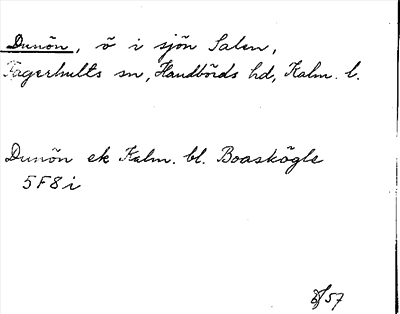 Dunön, ö i sjön Salen,
Fagerhults sn, Handbörds hd, Kalm. l.
Dunön ek Kalm. bl. Boaskögle
5F8i
8/57